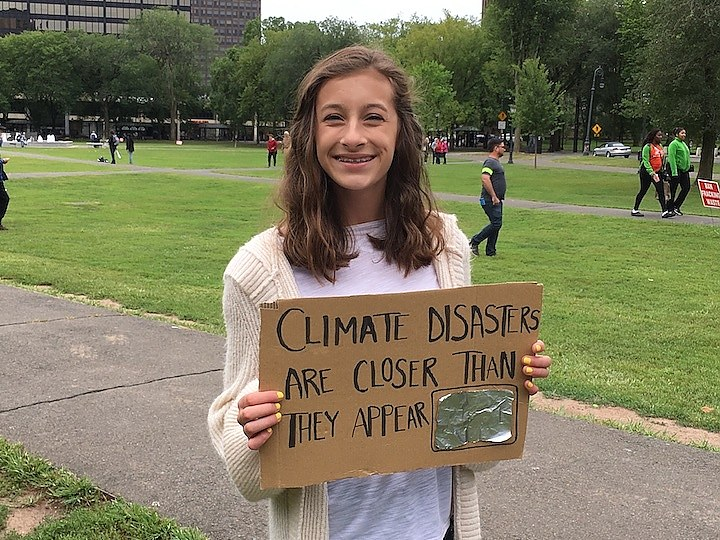 CLIMATE DISASTERS
ARE CLOSER THAN
THEY APPEAR
BAN
FRACKING
WASTE